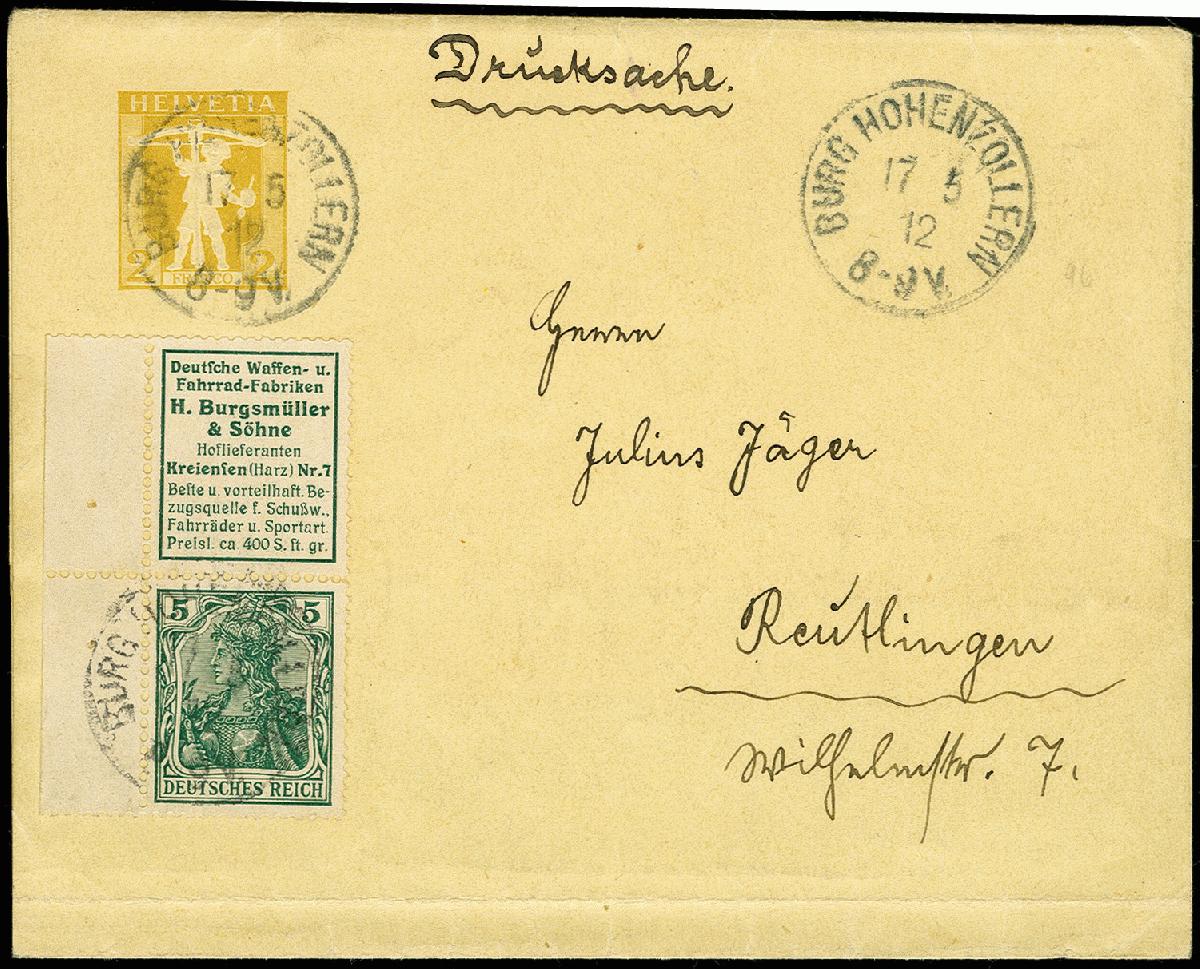 Drucksache.
HELVETIA
2 2
FRANCO
BURG HOHENZOLLERN
17 5
12
8-9V.
BURG HOHENZOLLERN
17 5
12
8-9V.
Herrn
Julius Jäger
Reutlingen
Wilhelmstr. 7.
Deutſche Waffen- u.
Fahrrad-Fabriken
H. Burgsmüller
& Söhne
Hoflieferanten
Kreienſen (Harz) Nr. 7
Beſte u. vorteilhaft. Be-
zugsquelle f. Schußw.,
Fahrräder u. Sportart.
Preisl. ca. 400 S. ſt. gr.
5 5
DEUTSCHES REICH
BURG